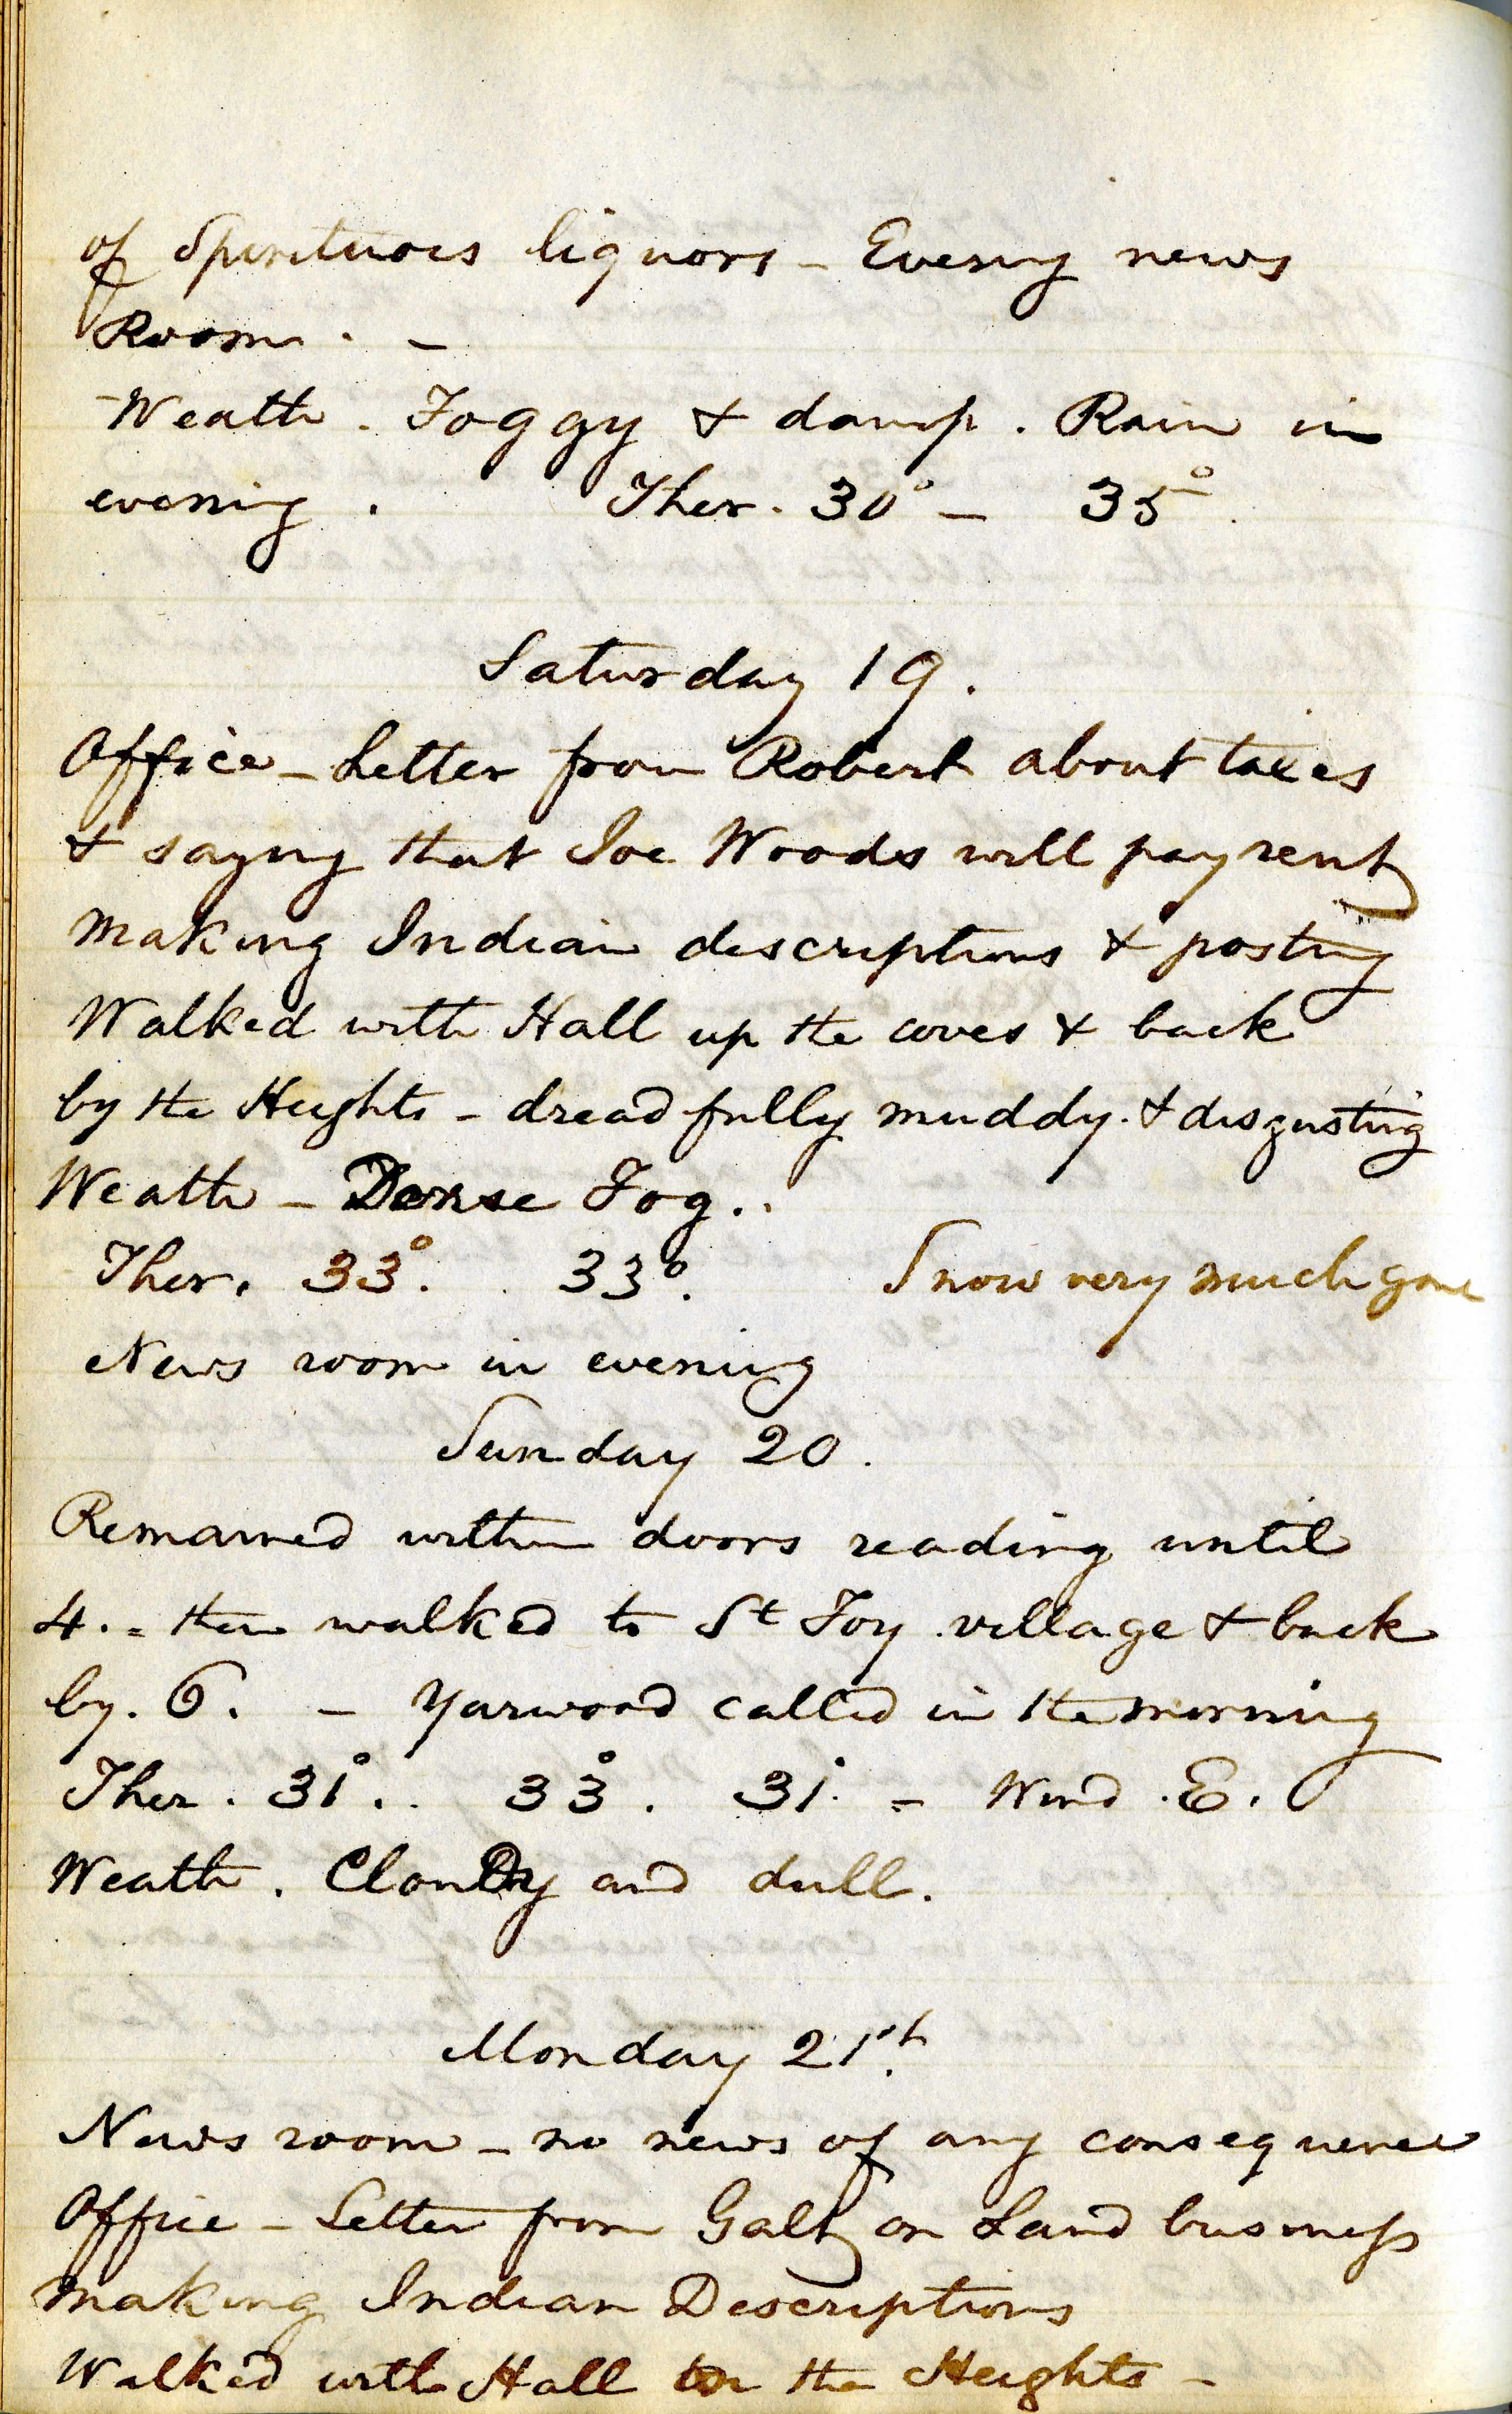 of Spirituous liquors – Evening news
Room. –
Weath. Foggy & damp. Rain in
evening. Ther. 30° – 35°.
Saturday 19.
Office – Letter from Robert about taxes
& saying that Joe Woods will pay rent
making Indian descriptions & posting
Walked with Hall up the coves & back
by the Heights – dreadfully muddy. & disgusting
Weath – Dense Fog..
Ther. 33°. . 33°. Snow very much gone
News room in evening
Sunday 20.
Remained within doors reading until
4. – then walked to St Foy village & back
by. 6. – Yarwood called in the morning
Ther. 31°.. 33°. 31°. – Wind .E.
Weath. Cloudy and dull.
Monday 21st.
News room – no news of any consequence
Office – Letter from Galt on Land business
making Indian Descriptions
Walked with Hall on the Heights –